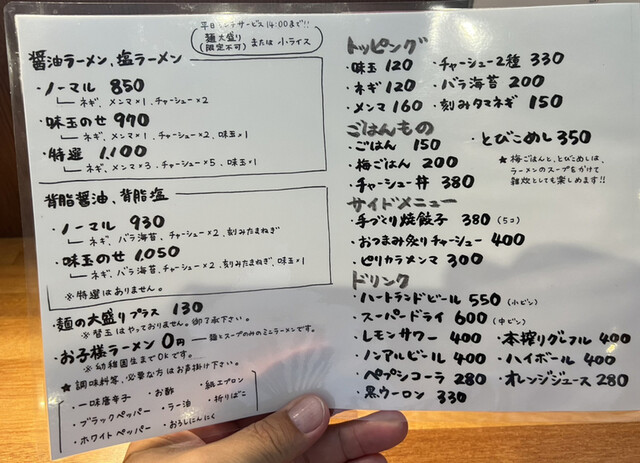 平日ランチサービス14:00まで!!
麺大盛り(限定不可)または小ライス
醤油ラーメン、塩ラーメン
・ノーマル 850
ネギ、メンマ×1、チャーシュー×2
・味玉のせ 970
ネギ、メンマ×1、チャーシュー×2、味玉×1
・特選 1,100
ネギ、メンマ×3、チャーシュー×5、味玉×1
背脂醤油、背脂塩
・ノーマル 930
ネギ、バラ海苔、チャーシュー×2、刻みたまねぎ
・味玉のせ 1,050
ネギ、バラ海苔、チャーシュー×2、刻みたまねぎ、味玉×1
※特選はありません。
・麺の大盛りプラス 130
※替玉はやっておりません。御了承下さい。
・お子様ラーメン 0円 ―麺とスープのみのミニラーメンです。
※幼稚園生までOKです。
★調味料等、必要な方はお声掛け下さい。
・一味唐辛子 ・お酢 ・紙エプロン
・ブラックペッパー ・ラー油 ・折りばこ
・ホワイトペッパー ・おろしにんにく
トッピング
・味玉 120 ・チャーシュー2種 330
・ネギ 120 ・バラ海苔 200
・メンマ 160 ・刻みタマネギ 150
ごはんもの
・ごはん 150 ・とびこめし 350
・梅ごはん 200
・チャーシュー丼 380
★梅ごはんと、とびこめしは、
ラーメンのスープをかけて
雑炊としても楽しめます!!
サイドメニュー
・手づくり焼餃子 380 (5コ)
・おつまみ炙りチャーシュー 400
・ピリカラメンマ 300
ドリンク
・ハートランドビール 550 (小ビン)
・スーパードライ 600 (中ビン)
・レモンサワー 400 ・本搾りグフル 400
・ノンアルビール 400 ・ハイボール 400
・ペプシコーラ 280 ・オレンジジュース 280
・黒ウーロン 330